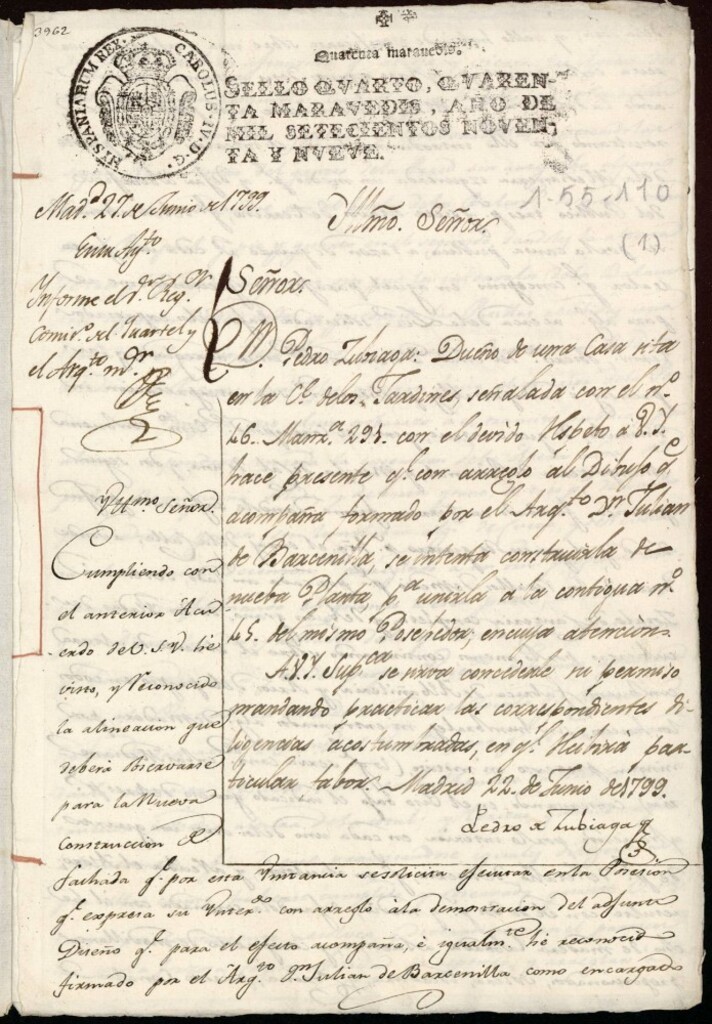 3962
HISPANIARUM REX. CAROLUS. IV. D. G.
Quarenta maravedis.
SELLO QVARTO, QVAREN-
TA MARAVEDIS, AÑO DE
MIL SETECIENTOS NOVEN-
TA Y NVEVE.
1-55-110
(1)
Mad.d 27 de Junio de 1799.
En su Ay.to
Informe el s.r Reg.or
Comis.o del Quartel y
el Arq.to m.or
Yllmo. Señor.
Señor.
D.n Pedro Zubiaga: Dueño de una Casa sita
en la C.e de los Jardines, señalada con el n.o
16. Manz.a 291. con el devido Rspeto a V.Y.
hace presente q.e con arreglo al Dibujo q.e
acompaña formado por el Arq.to D.n Julian
de Barcenilla, se intenta construirla de
nueba Planta, p.a unirla a la contigua n.o
15. del mismo Posehedor, en cuya atencion.
A V.Y. Sup.ca se sirva concederle su permiso
mandando practicar las correspondientes di-
ligencias acostumbradas, en q.e Recibirá par-
ticular fabor. Madrid 22. de Junio de 1799.
Pedro de Zubiaga
Yllmo. Señor.
Cumpliendo con
el anterior Acu-
erdo de V.S.Y. he
visto, y Reconocido
la alineacion que
deberá obserbarse
para la Nueva
Construccion de
fachada q.e por esta Ynstancia se solicita efecutar en la Posesion
q.e expresa su Ynter.do con arreglo à la demonstracion del adjunto
Diseño q.e para el efecto acompaña, è igualm.te he reconocido
firmado por el Arq.to D.n Julian de Barcenilla como encargado